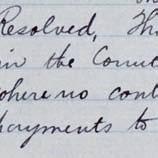 Resolved, Th
in the Coun
where no cont
payments to